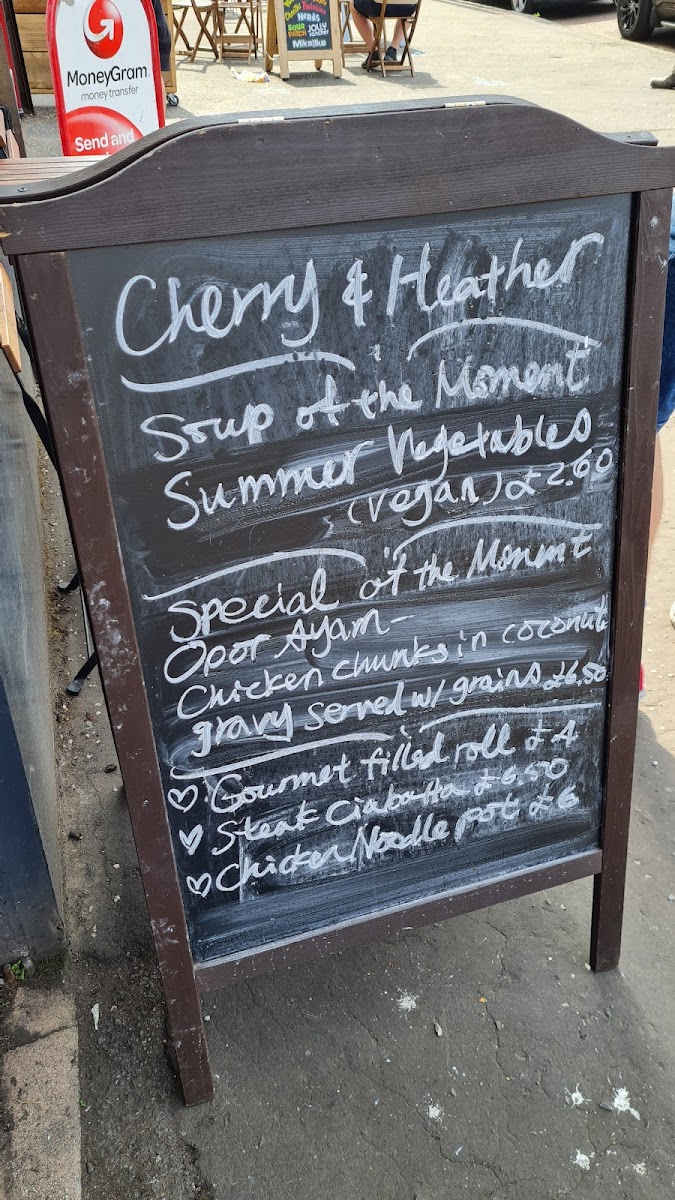 MoneyGram
money transfer
Send and
Nerds
SOUR
PATCH
JOLLY
Mike&Ike
Cherry & Heather
Soup of the Moment
Summer Vegetables
(vegan) £2.60
Special of the Moment
Opor Ayam-
Chicken chunks in coconut
gravy served w/ grains £6.50
♡ Gourmet filled roll £4
♡ Steak Ciabatta £6.50
♡ Chicken Noodle pot £6